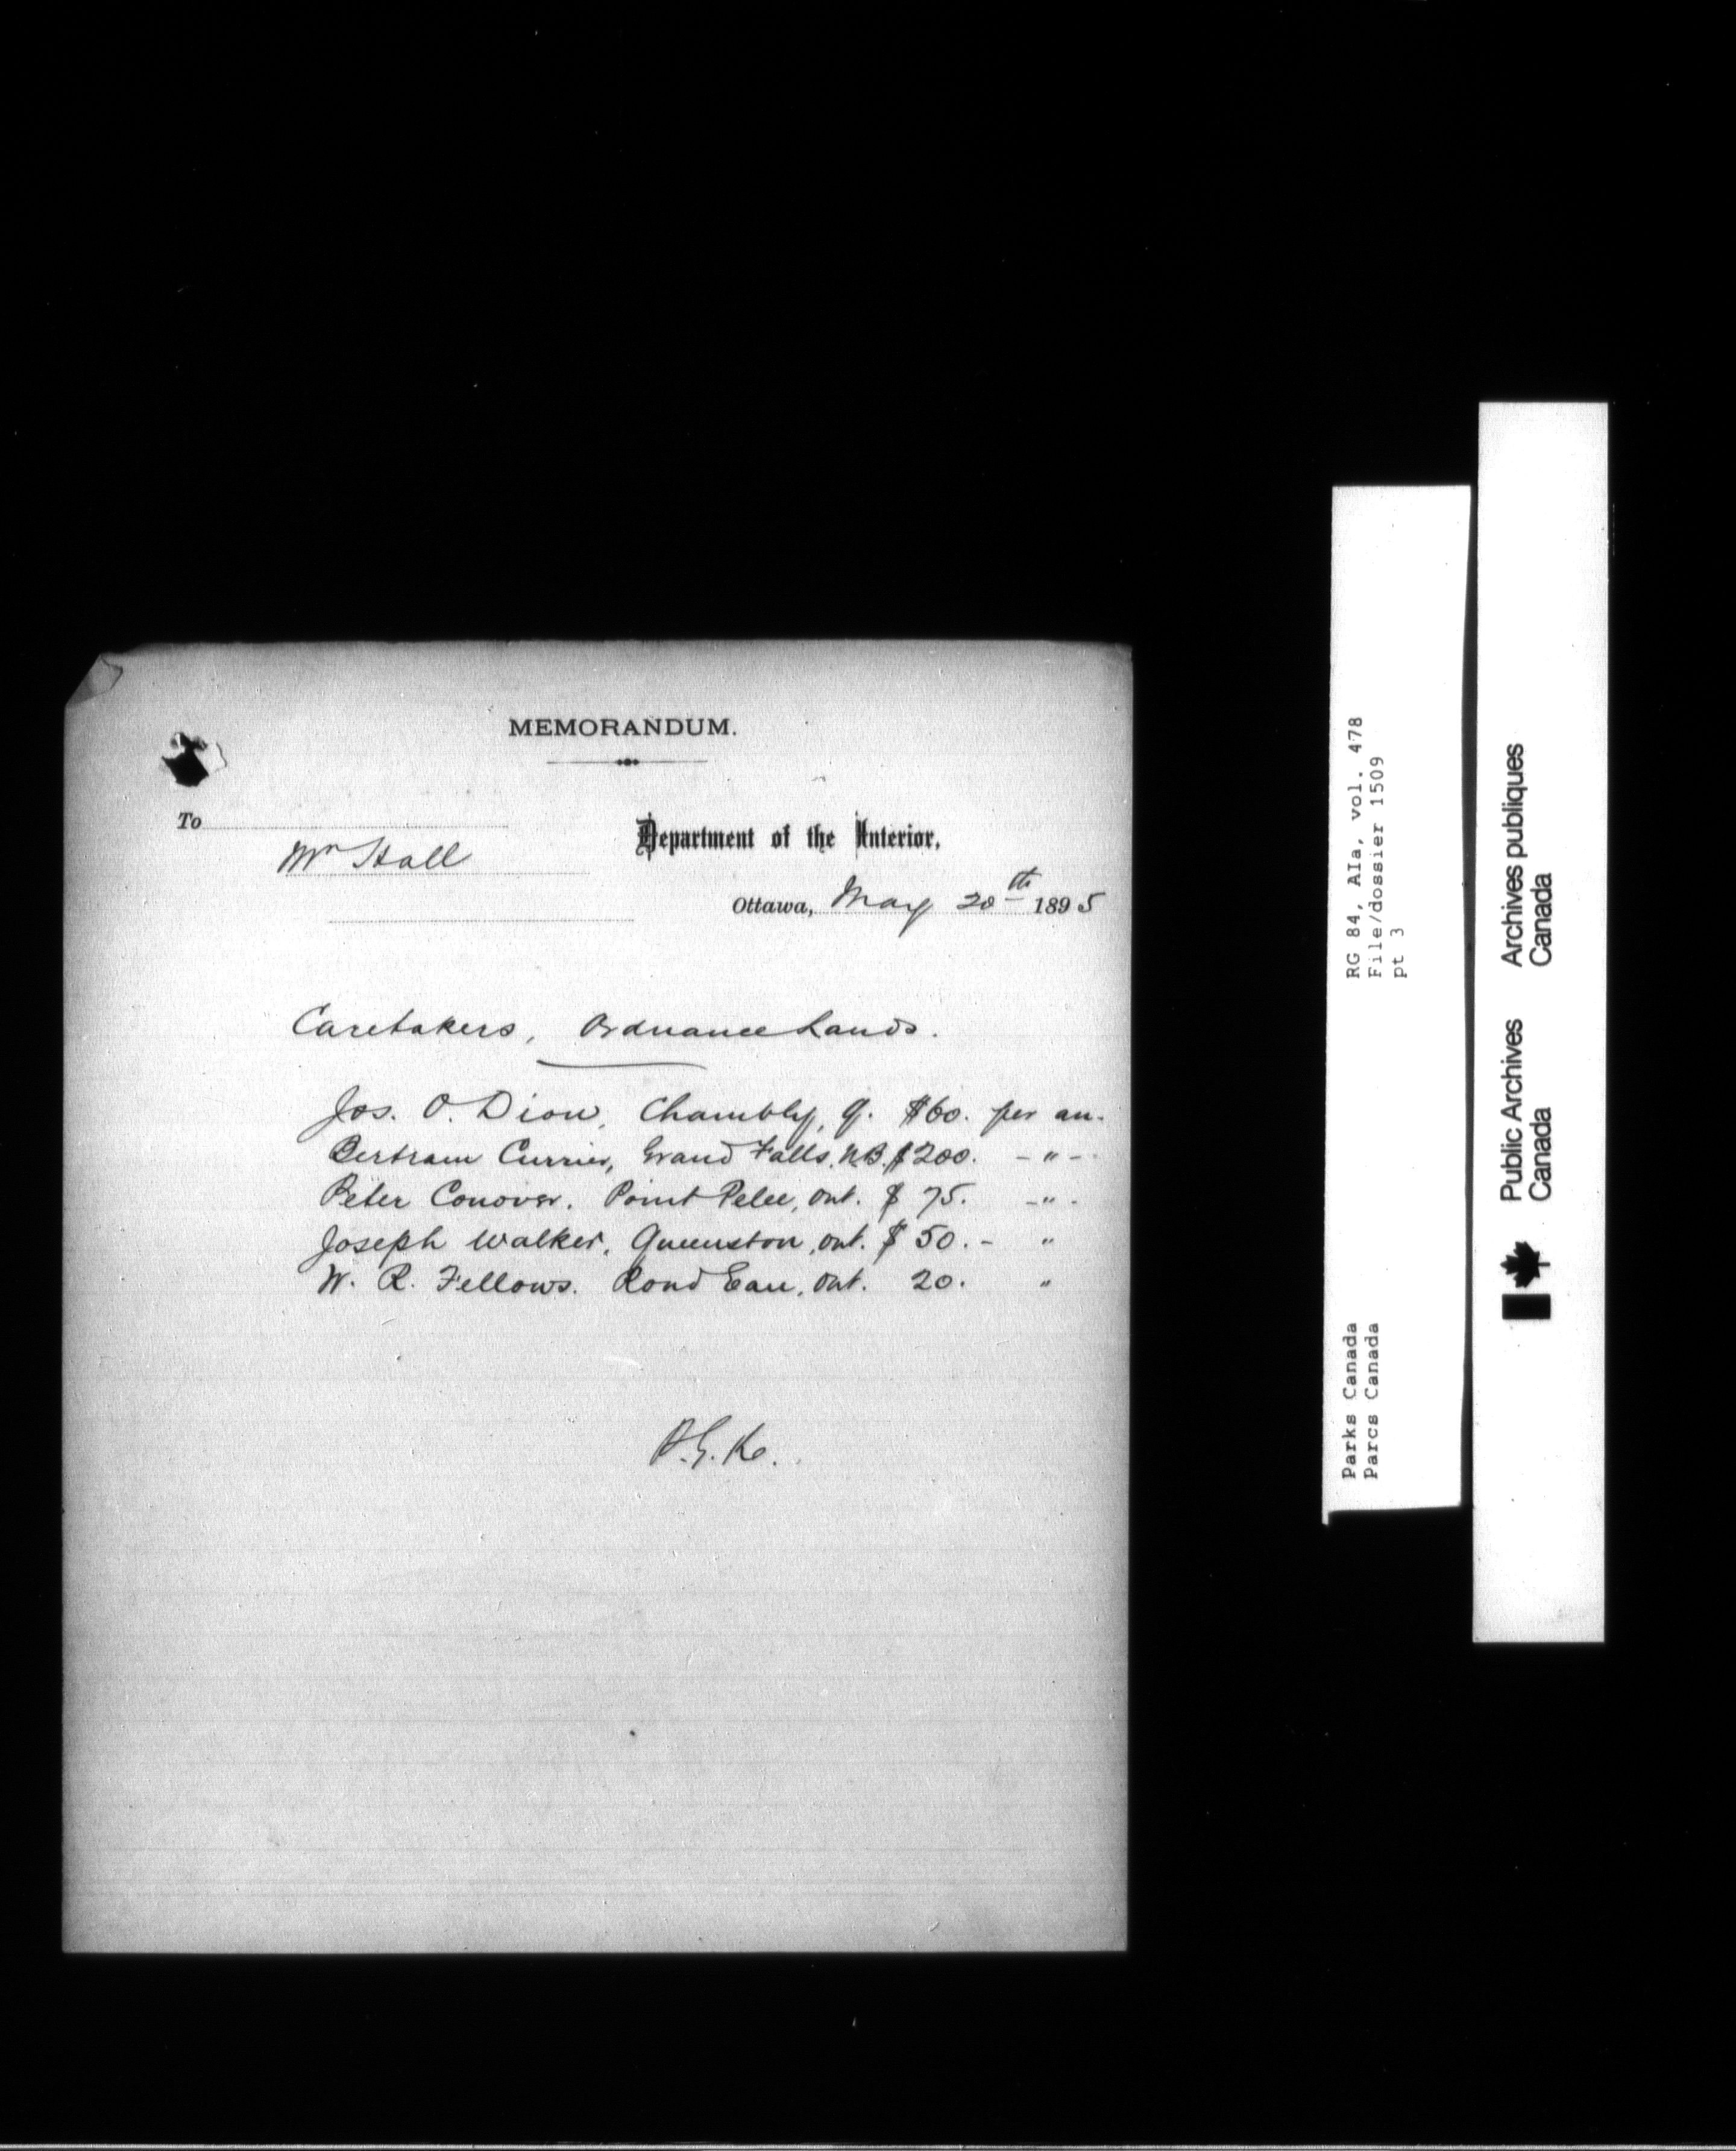 MEMORANDUM.
To
Mr Hall
Department of the Interior,
Ottawa, May 20th 1895
Caretakers, Ordnance Lands.
Jos. O. Dion, Chambly, Q. $60. per an.
Bertram Currier, Grand Falls, N.B. $200. - " -
Peter Conover. Point Pelee, Ont. $75. - " -
Joseph Walker, Queenston, Ont. $50. - "
W. R. Fellows. Rond Eau, Ont. 20. "
P.G.K.
RG 84, AIa, vol. 478
File/dossier 1509
pt 3
Parks Canada
Parcs Canada
Public Archives
Canada
Archives publiques
Canada